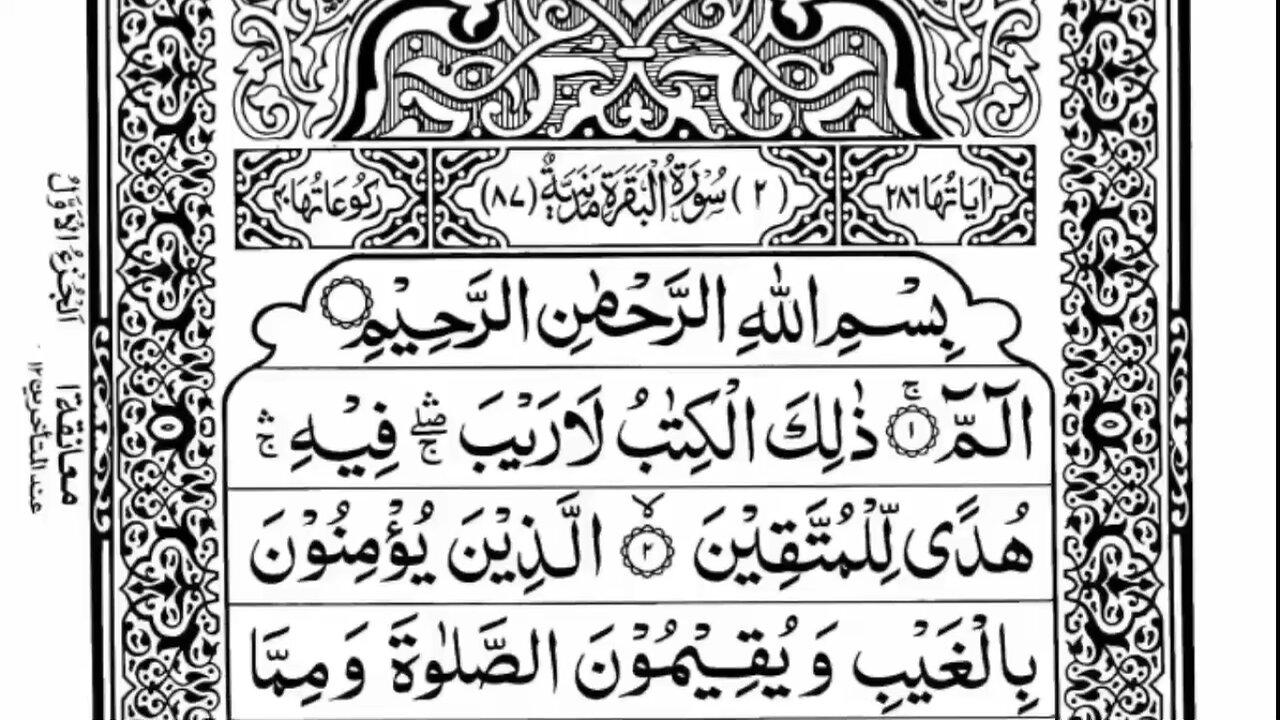 اٰيَاتُهَا ٢٨٦
(٢) سُوْرَةُ الْبَقَرَةِ مَدَنِيَّةٌ (٨٧)
رُكُوْعَاتُهَا ٤٠
بِسْمِ اللّٰهِ الرَّحْمٰنِ الرَّحِيْمِ
الٓمّٓ ۚ ١ ذٰلِكَ الْكِتٰبُ لَا رَيْبَ ۛۖۚ فِيْهِ ۛۚ
هُدًى لِّلْمُتَّقِيْنَ ۙ ٢ الَّذِيْنَ يُؤْمِنُوْنَ
بِالْغَيْبِ وَ يُقِيْمُوْنَ الصَّلٰوةَ وَ مِمَّا
اَلْجُزْءُ الْاَوَّلُ
معانقة ١
عند المتأخرين ١٢